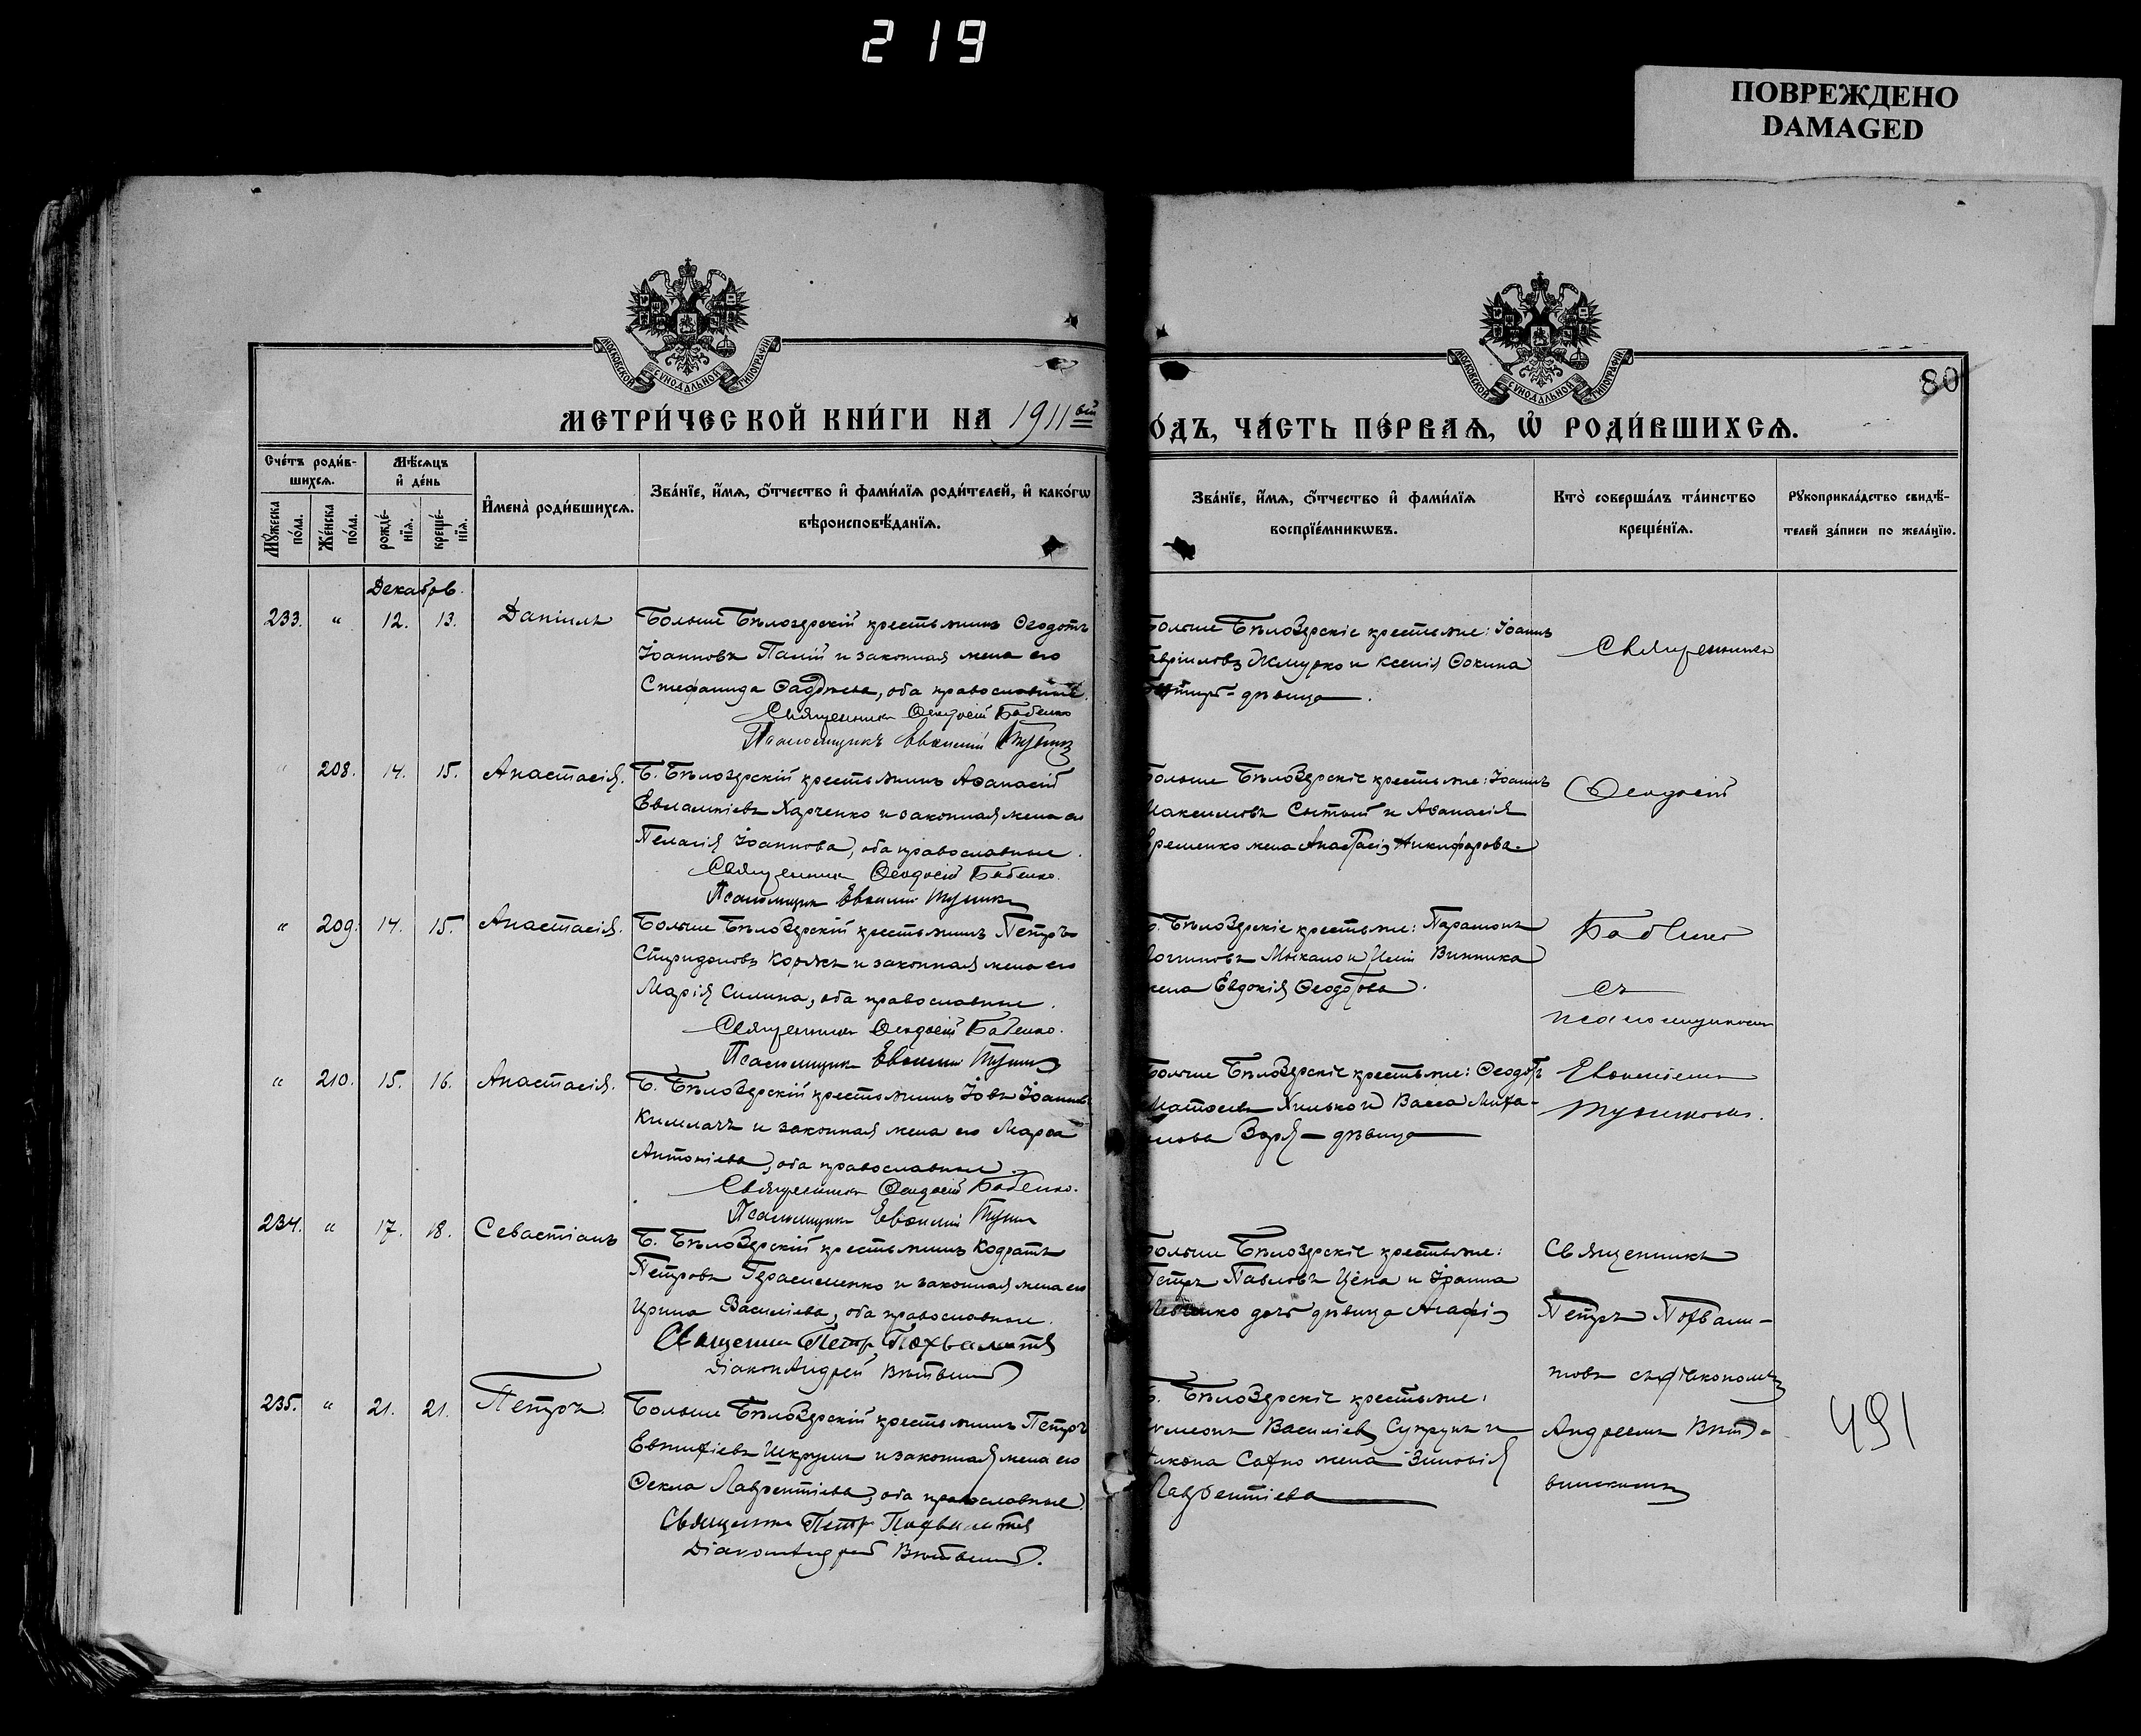 219
ПОВРЕЖДЕНО
DAMAGED
МОСКОВСКОЙ СѴНОДАЛЬНОЙ ТИПОГРАФІИ
МОСКОВСКОЙ СѴНОДАЛЬНОЙ ТИПОГРАФІИ
80
МЕТРИ́ЧЕСКОЙ КНИ́ГИ НА 1911ый
О́ДЪ, ЧА́СТЬ ПЕ́РВАѦ, Ѿ РОДИ́ВШИХСѦ.
Сче́тъ роди́в-
шихсѧ.
Мѣ́сѧцъ
и҆ де́нь
Мꙋ́жеска
по́ла.
Же́нска
по́ла.
рожде́-
нїѧ.
креще́-
нїѧ.
И҆мена̀ роди́вшихсѧ.
Зва́нїе, и҆́мѧ, ѻ҆́тчество и҆ фами́лїѧ роди́телей, и҆ како́гѡ
вѣроисповѣ́данїѧ.
Зва́нїе, и҆́мѧ, ѻ҆́тчество и҆ фами́лїѧ
воспрїе́мникѡвъ.
Кто̀ соверша́лъ та́инство
креще́нїѧ.
Рꙋкоприкла́дство свидѣ́-
телей за́писи по жела́нїю.
Декабрь.
233. " 12. 13. Даніилъ
Больше Бѣлозерскій крестьянинъ Ѳеодотъ
Іоанновъ Палій и законная жена его
Стефанида Ѳаддѣева, оба православные.
Священникъ Ѳеодосій Бабенко
Псаломщикъ Евѳимій
Больше Бѣлозерскіе крестьяне: Іоаннъ
Гавріиловъ Жмурко и Ксенія Ѳокина
дѣвица.
Священникъ
" 208. 14. 15. Анастасія.
Б. Бѣлозерскій крестьянинъ Аѳанасій
Евлампіевъ Харченко и законная жена его
Пелагія Іоаннова, оба православные.
Священникъ Ѳеодосій Бабенко.
Псаломщикъ Евѳимій
Больше Бѣлозерскіе крестьяне: Іоаннъ
Максимовъ Сытый и Аѳанасія
Еременко жена Анастасія Никифорова.
Ѳеодосій
" 209. 14. 15. Анастасія.
Больше Бѣлозерскій крестьянинъ Петръ
Спиридоновъ Коржъ и законная жена его
Марія Силина, оба православные.
Священникъ Ѳеодосій Бабенко.
Псаломщикъ Евѳимій
Б. Бѣлозерскіе крестьяне: Парамонъ
Логгиновъ Винника
жена Евдокія Ѳеодотова.
Бабенко
съ
псаломщикомъ
" 210. 15. 16. Анастасія.
Б. Бѣлозерскій крестьянинъ Іовъ Іоанновъ
и законная жена его Марѳа
Антоніева, оба православные.
Священникъ Ѳеодосій Бабенко.
Псаломщикъ Евѳимій
Больше Бѣлозерскіе крестьяне: Ѳеодотъ
Матѳеевъ Хилько и Васса Миха-
илова Заря - дѣвица
Евѳиміемъ
234. " 17. 18. Севастіанъ
Б. Бѣлозерскій крестьянинъ Кодратъ
Петровъ Герасименко и законная жена его
Ирина Василіева, оба православные.
Священникъ Петръ Похвалитовъ
Діаконъ Андрей
Больше Бѣлозерскіе крестьяне:
Петръ Павловъ Цёка и
дочь дѣвица Агафія
Священникъ
Петръ Похвали-
товъ съ діакономъ
235. " 21. 21. Петръ
Больше Бѣлозерскій крестьянинъ Петръ
Евтихіевъ и законная жена его
Ѳекла Лаврентіева, оба православные.
Священникъ Петръ Похвалитовъ
Діаконъ Андрей
Б. Бѣлозерскіе крестьяне:
Василіевъ Супрунъ и
Сахно жена Зиновія
Лаврентіева
Андреемъ
491